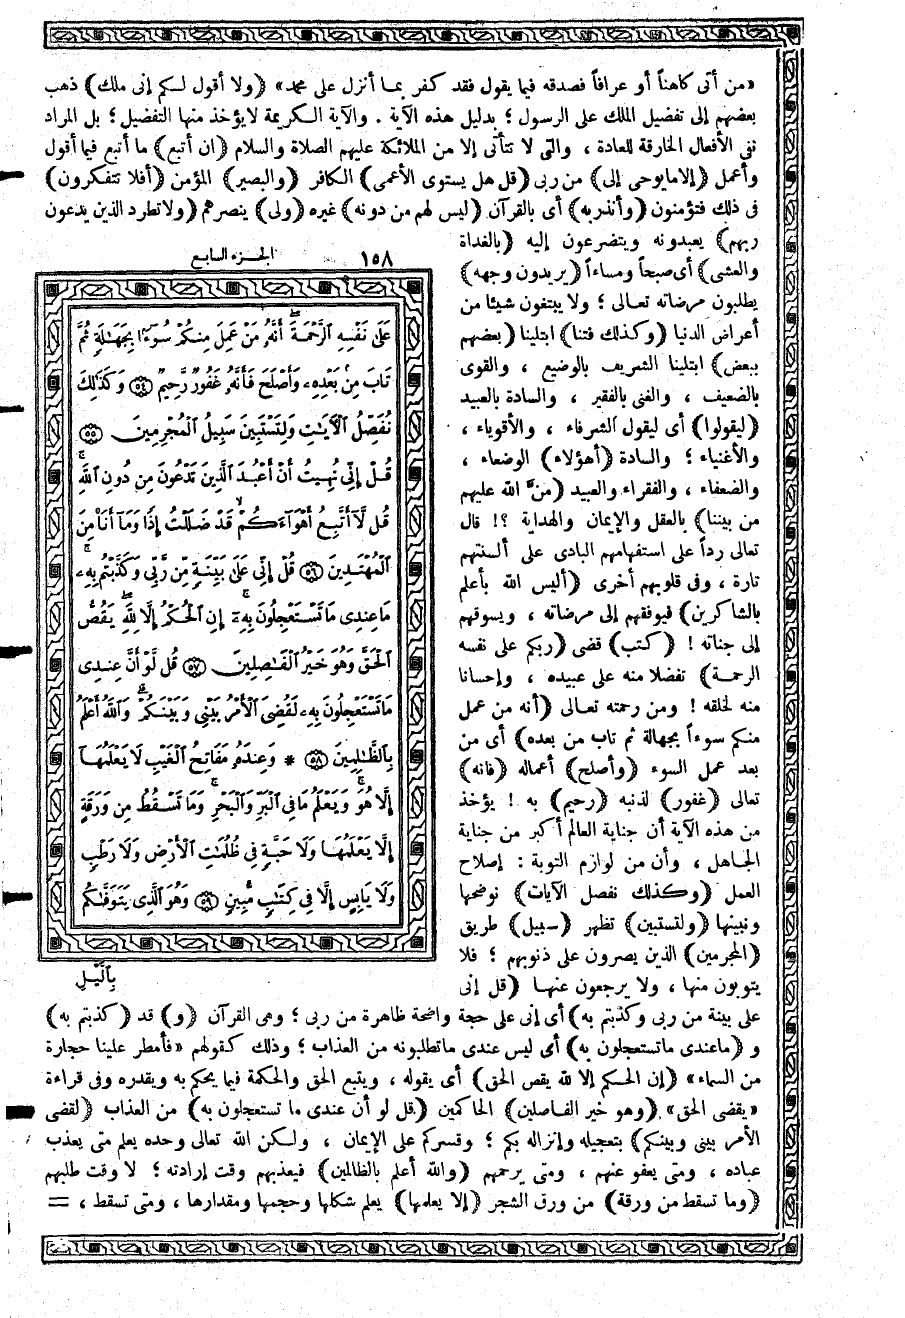 «من أتى كاهناً أو عرافاً فصدقه فيما يقول فقد كفر بما أنزل على محمد» (ولا أقول لكم إنى ملك) ذهب
بعضهم إلى تفضيل الملك على الرسول ؛ بدليل هذه الآية . والآية الكريمة لايؤخذ منها التفضيل ؛ بل المراد
نفى الأفعال الخارقة للعادة ، والتى لا تتأتى إلا من الملائكة عليهم الصلاة والسلام (ان أتبع) ما أتبع فيما أقول
وأعمل (إلا مايوحى إلى) من ربى (قل هل يستوى الأعمى) الكافر (والبصير) المؤمن (أفلا تتفكرون)
فى ذلك فتؤمنون (وأنذر به) أى بالقرآن (ليس لهم من دونه) غيره (ولى) ينصرهم (ولا تطرد الذين يدعون
ربهم) يعبدونه ويتضرعون إليه (بالغداة
والعشى) أى صبحاً ومساءاً (يريدون وجهه)
يطلبون مرضاته تعالى ؛ ولا يبتغون شيئا من
أعراض الدنيا (وكذلك فتنا) ابتلينا (بعضهم
ببعض) ابتلينا الشريف بالوضيع ، والقوى
بالضعيف ، والغنى بالفقير ، والسادة بالعبيد
(ليقولوا) أى ليقول الشرفاء ، والأقوياء ،
والأغنياء ؛ والسادة (أهؤلاء) الوضعاء ،
والضعفاء ، والفقراء والعبيد (من الله عليهم
من بيننا) بالعقل والإيمان والهداية ؟! قال
تعالى رداً على استفهامهم البادى على ألسنتهم
تارة ، وفى قلوبهم أخرى (أليس الله بأعلم
بالشاكرين) فيوفقهم إلى مرضاته ، ويسوقهم
إلى جناته ! (كتب) قضى (ربكم على نفسه
الرحمة) تفضلا منه على عبيده ، وإحسانا
منه لخلقه ! ومن رحمته تعالى (أنه من عمل
منكم سوءاً بجهالة ثم تاب من بعده) أى من
بعد عمل السوء (وأصلح) أعماله (فانه)
تعالى (غفور) لذنبه (رحيم) به ! يؤخذ
من هذه الآية أن جناية العالم أكبر من جناية
الجاهل ، وأن من لوازم التوبة : إصلاح
العمل (وكذلك نفصل الآيات) نوضحها
ونبينها (ولتستبين) تظهر (سبيل) طريق
(المجرمين) الذين يصرون على ذنوبهم ؛ فلا
يتوبون منها ، ولا يرجعون عنها (قل إنى
١٥٨ الجزء السابع
عَلَىٰ نَفْسِهِ ٱلرَّحْمَةَ أَنَّهُۥ مَنْ عَمِلَ مِنكُمْ سُوٓءًۢا بِجَهَـٰلَةٍ ثُمَّ
تَابَ مِنۢ بَعْدِهِۦ وَأَصْلَحَ فَأَنَّهُۥ غَفُورٌ رَّحِيمٌ ٥٤ وَكَذَٰلِكَ
نُفَصِّلُ ٱلْـَٔايَـٰتِ وَلِتَسْتَبِينَ سَبِيلُ ٱلْمُجْرِمِينَ ٥٥
قُلْ إِنِّى نُهِيتُ أَنْ أَعْبُدَ ٱلَّذِينَ تَدْعُونَ مِن دُونِ ٱللَّهِ
قُل لَّآ أَتَّبِعُ أَهْوَآءَكُمْ قَدْ ضَلَلْتُ إِذًا وَمَآ أَنَا۠ مِنَ
ٱلْمُهْتَدِينَ ٥٦ قُلْ إِنِّى عَلَىٰ بَيِّنَةٍ مِّن رَّبِّى وَكَذَّبْتُم بِهِۦ
مَا عِندِى مَا تَسْتَعْجِلُونَ بِهِۦٓ إِنِ ٱلْحُكْمُ إِلَّا لِلَّهِ يَقُصُّ
ٱلْحَقَّ وَهُوَ خَيْرُ ٱلْفَـٰصِلِينَ ٥٧ قُل لَّوْ أَنَّ عِندِى
مَا تَسْتَعْجِلُونَ بِهِۦ لَقُضِىَ ٱلْأَمْرُ بَيْنِى وَبَيْنَكُمْ وَٱللَّهُ أَعْلَمُ
بِٱلظَّـٰلِمِينَ ٥٨ * وَعِندَهُۥ مَفَاتِحُ ٱلْغَيْبِ لَا يَعْلَمُهَآ
إِلَّا هُوَ وَيَعْلَمُ مَا فِى ٱلْبَرِّ وَٱلْبَحْرِ وَمَا تَسْقُطُ مِن وَرَقَةٍ
إِلَّا يَعْلَمُهَا وَلَا حَبَّةٍ فِى ظُلُمَـٰتِ ٱلْأَرْضِ وَلَا رَطْبٍ
وَلَا يَابِسٍ إِلَّا فِى كِتَـٰبٍ مُّبِينٍ ٥٩ وَهُوَ ٱلَّذِى يَتَوَفَّىٰكُم
بِٱلَّيْلِ
على بينة من ربى وكذبتم به) أى إنى على حجة واضحة ظاهرة من ربى ؛ وهى القرآن (و) قد (كذبتم به)
و (ماعندى ماتستعجلون به) أى ليس عندى ماتطلبونه من العذاب ؛ وذلك كقولهم «فأمطر علينا حجارة
من السماء» (إن الحكم إلا لله يقص الحق) أى يقوله ، ويتبع الحق والحكمة فيما يحكم به ويقدره وفى قراءة
«يقضى الحق» (وهو خير الفاصلين) الحاكمين (قل لو أن عندى ما تستعجلون به) من العذاب (لقضى
الأمر بينى وبينكم) بتعجيله وإنزاله بكم ؛ وقسركم على الإيمان ، ولكن الله تعالى وحده يعلم متى يعذب
عباده ، ومتى يعفو عنهم ، ومتى يرحمهم (والله أعلم بالظالمين) فيعذبهم وقت إرادته ؛ لا وقت طلبهم
(وما تسقط من ورقة) من ورق الشجر (إلا يعلمها) يعلم شكلها وحجمها ومقدارها ، ومتى تسقط ، =